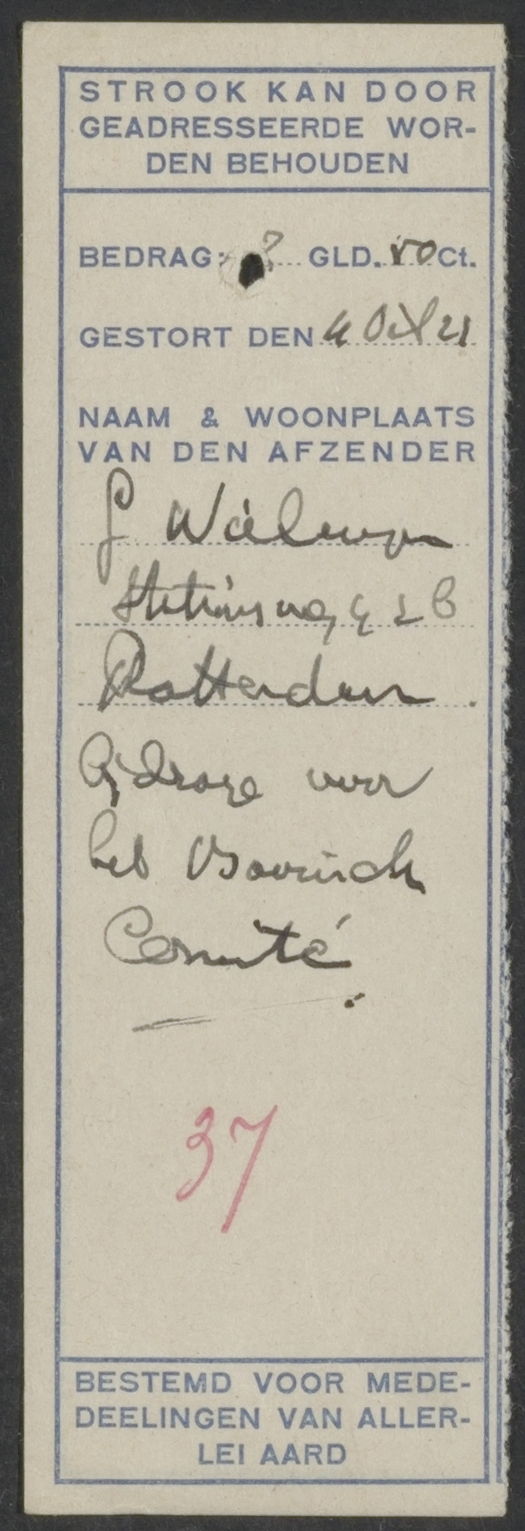 STROOK KAN DOOR
GEADRESSEERDE WOR-
DEN BEHOUDEN
BEDRAG: GLD. 50 Ct.
GESTORT DEN 4 Oct 21
NAAM & WOONPLAATS
VAN DEN AFZENDER
Rotterdam.
Bijdrage voor
het
Comité.
37
BESTEMD VOOR MEDE-
DEELINGEN VAN ALLER-
LEI AARD